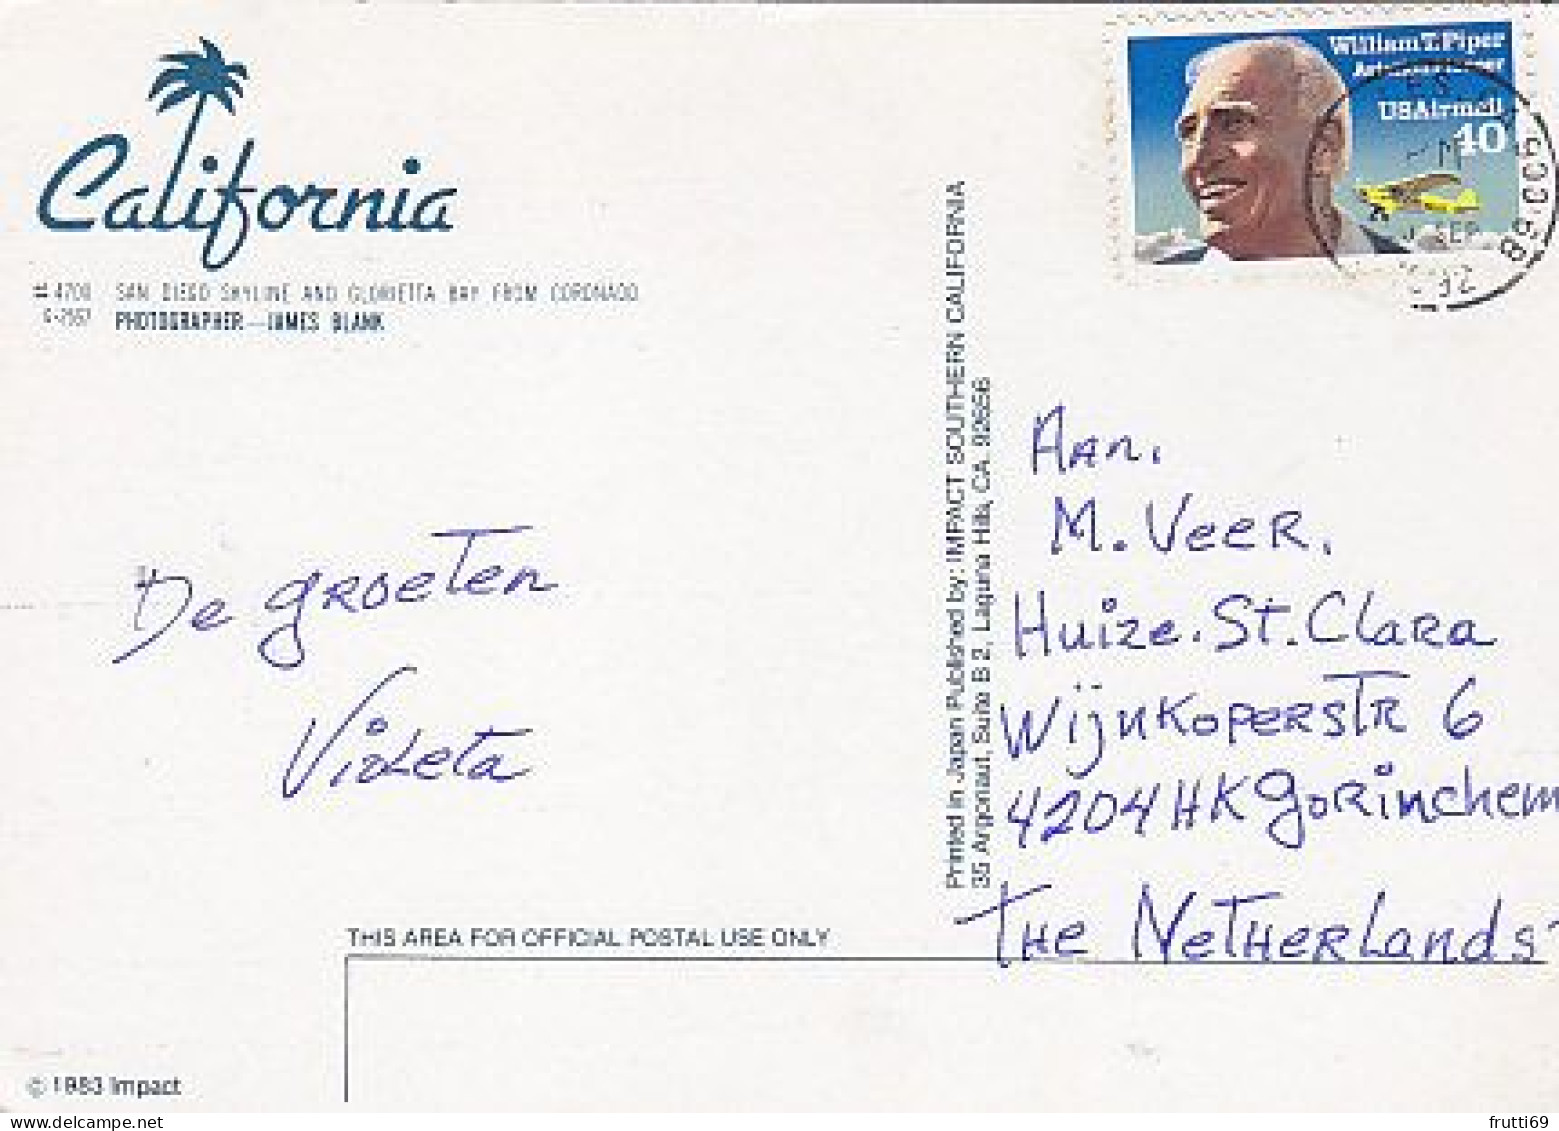 California
4700 SAN DIEGO SKYLINE AND GLORIETTA BAY FROM CORONADO
PHOTOGRAPHER—JAMES BLANK
De groeten
Violeta
THIS AREA FOR OFFICIAL POSTAL USE ONLY
© 1983 Impact
Printed in Japan Published by: IMPACT SOUTHERN CALIFORNIA
35 Argonaut, Suite B 2, Laguna Hills, CA. 92656
William T. Piper
USAirmail
40
SEP
Aan.
M. Veer.
Huize. St. Clara
Wijnkoperstr 6
4204 HK Gorinchem
The Netherlands
frutti69